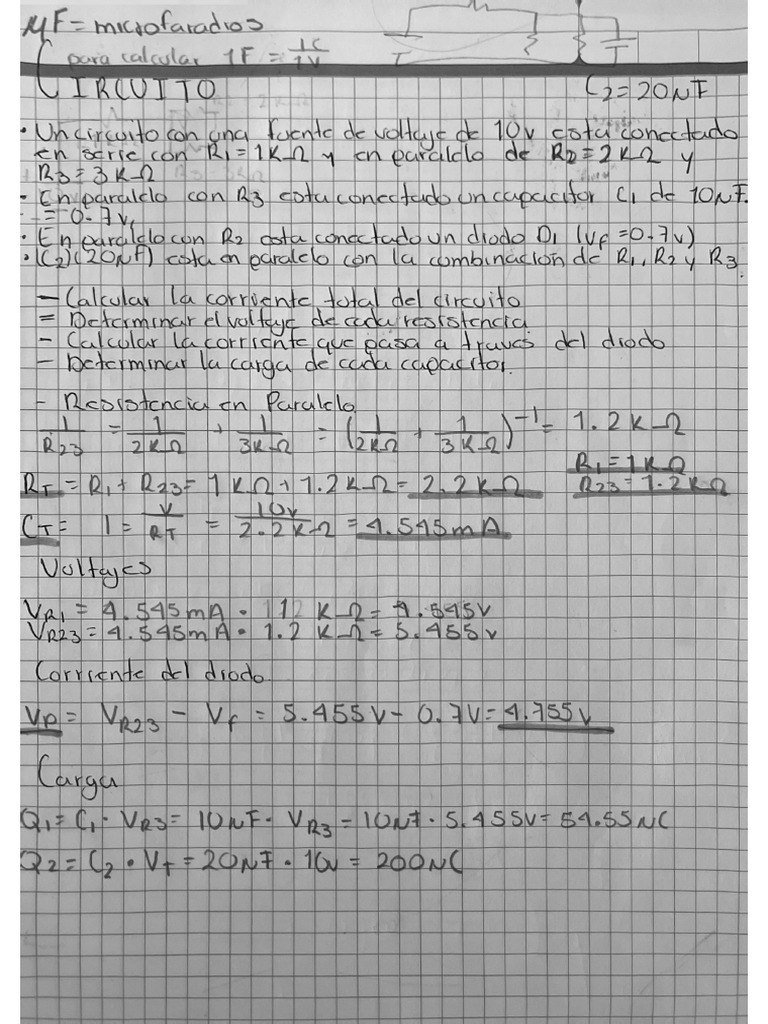 μF = microfaradios
para calcular 1F = 1C/1V
CIRCUITO C₂ = 20μF
• Un circuito con una fuente de voltaje de 10v esta conectado
en serie con R₁ = 1KΩ y en paralelo de R₂ = 2KΩ y
R₃ = 3KΩ
- En paralelo con R₃ esta conectado un capacitor C₁ de 10μF.
= 0.7v,
• En paralelo con R₂ esta conectado un diodo D₁ (Vf = 0.7v)
• (C₂)(20μF) esta en paralelo con la combinacion de R₁, R₂ y R₃.
- Calcular la corriente total del circuito
= Determinar el voltaje de cada resistencia
- Calcular la corriente que pasa a traves del diodo
- Determinar la carga de cada capacitor.
- Resistencia en Paralelo
1/R₂₃ = 1/2KΩ + 1/3KΩ = (1/2KΩ + 1/3KΩ)⁻¹ = 1.2KΩ
R₁ = 1KΩ
RT = R₁ + R₂₃ = 1KΩ + 1.2KΩ = 2.2KΩ R₂₃ = 1.2KΩ
CT = I = V/RT = 10v/2.2KΩ = 4.545mA
Voltajes
VR₁ = 4.545mA • KΩ = 4.545v
VR₂₃ = 4.545mA • 1.2 KΩ = 5.455v
Corriente del diodo
VD = VR₂₃ - Vf = 5.455V - 0.7V = 4.755v
Carga
Q₁ = C₁ • VR₃ = 10μF • VR₃ = 10μF • 5.455V = 54.55μC
Q₂ = C₂ • VT = 20μF • 10v = 200μC